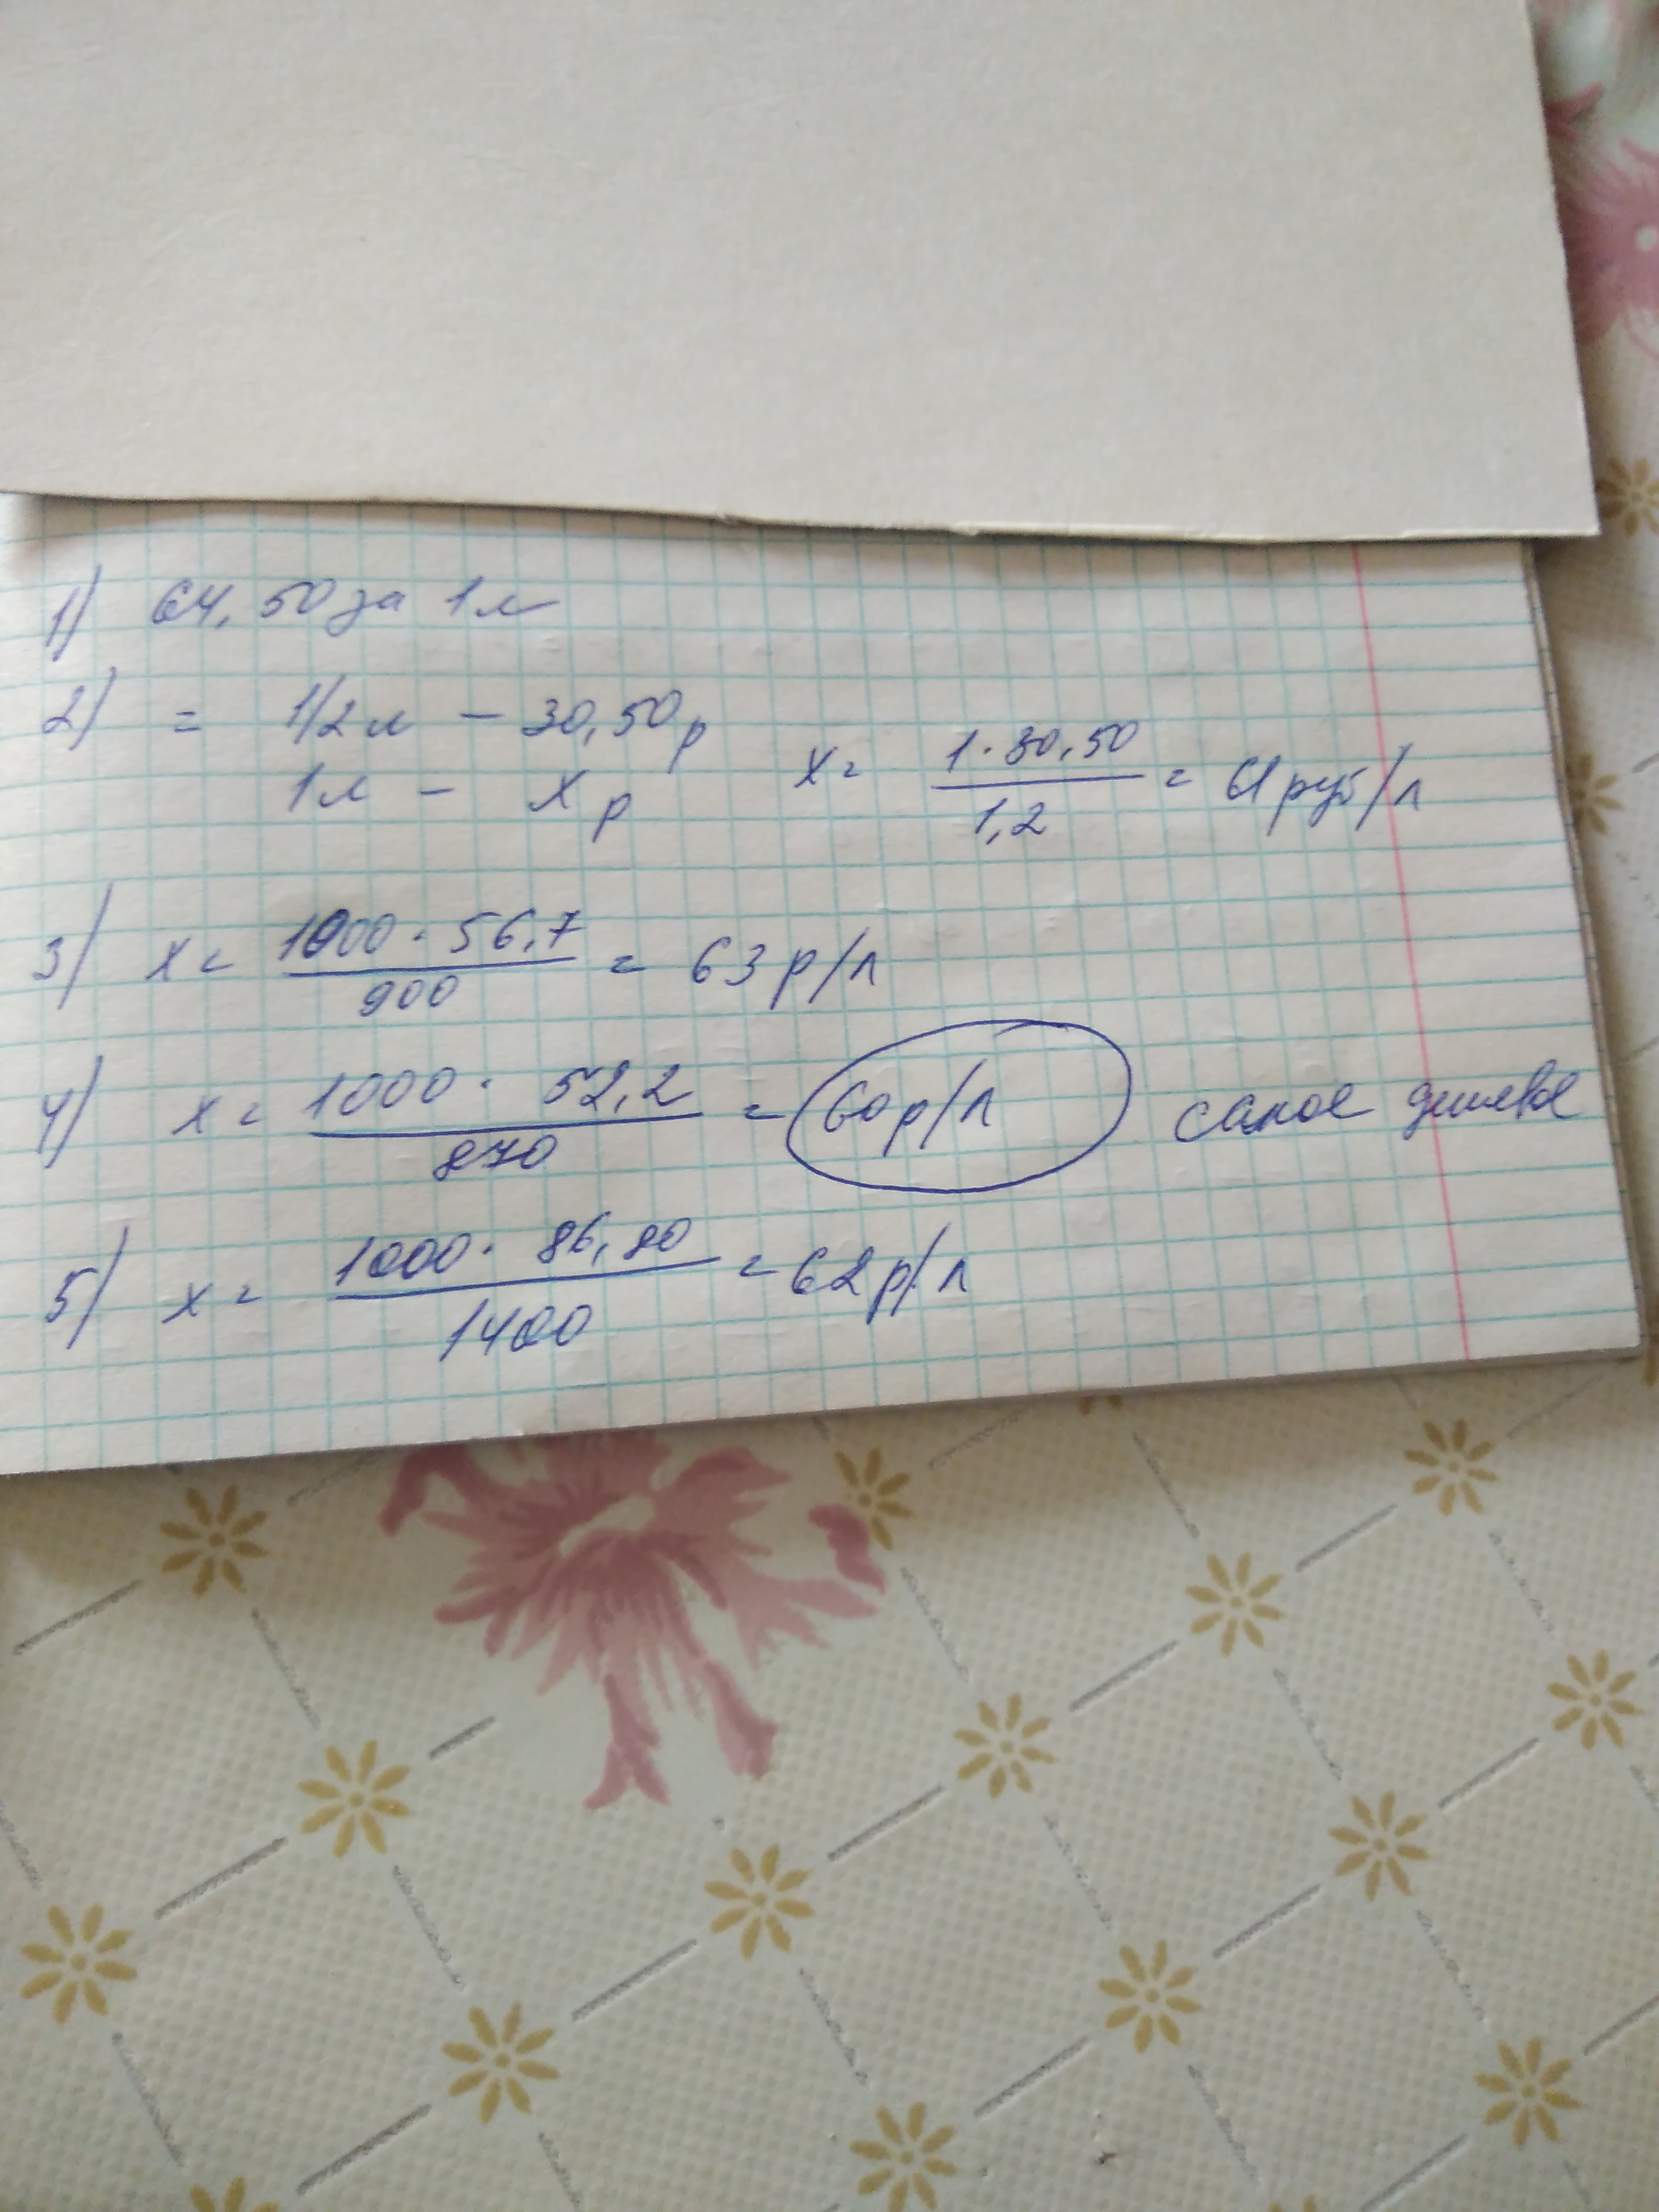 1) 64,50 за 1л
2) = 1/2 л – 30,50 р
1л – х р х = 1·30,50 / 1,2 = 61 руб/л
3) х = 1000·56,7 / 900 = 63 р/л
4) х = 1000·52,2 / 870 = 60 р/л самое дешевое
5) х = 1000·86,80 / 1400 = 62 р/л